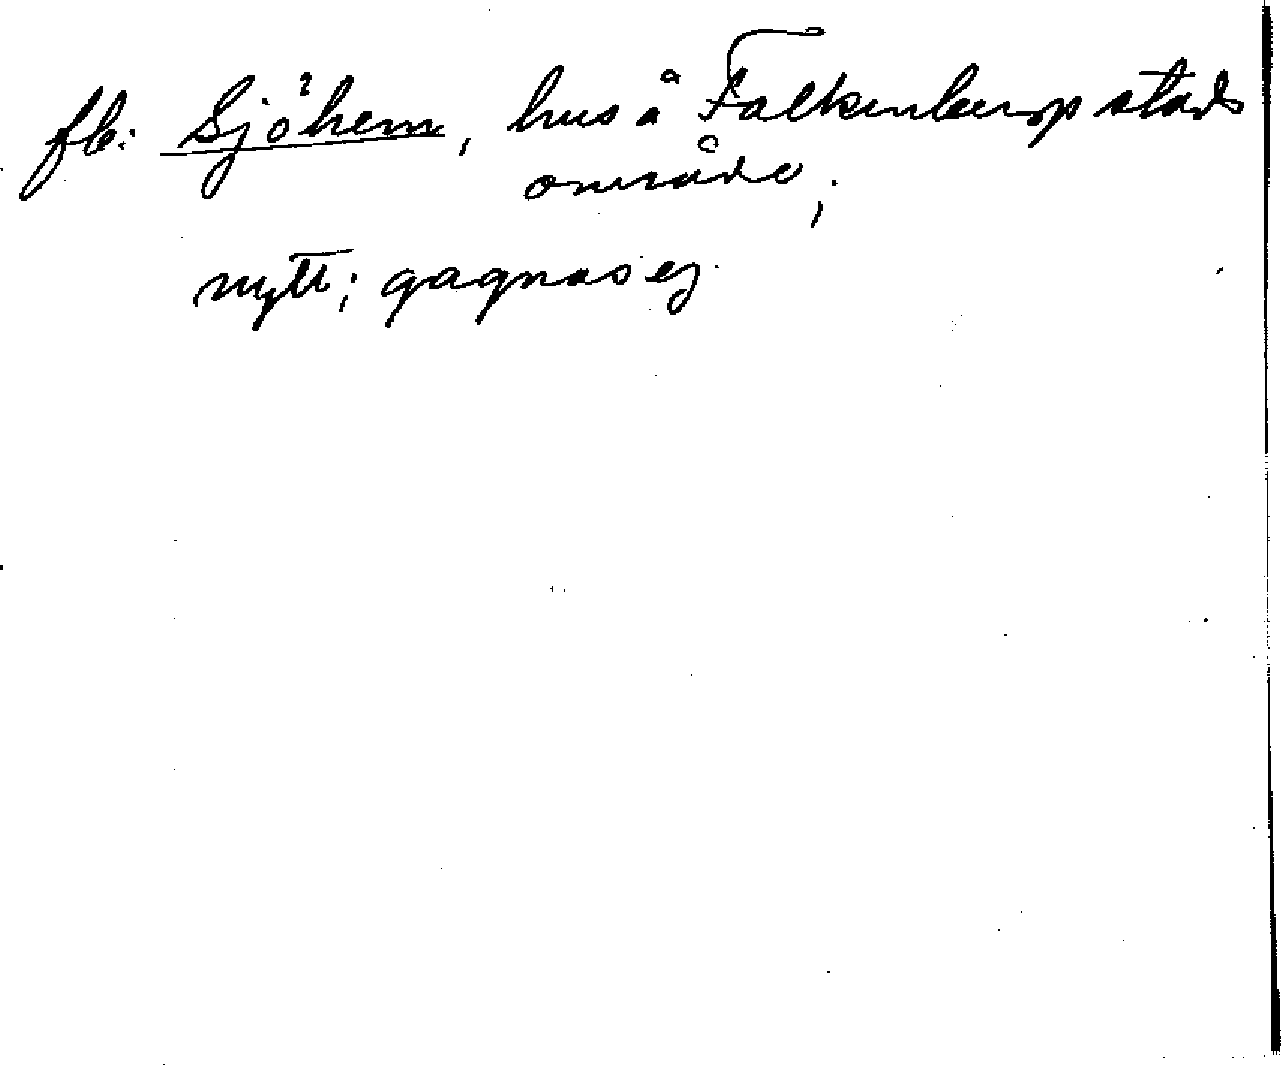 fb: Sjöhem, hus å Falkenbergs stads
område;
nytt; gagnas ej